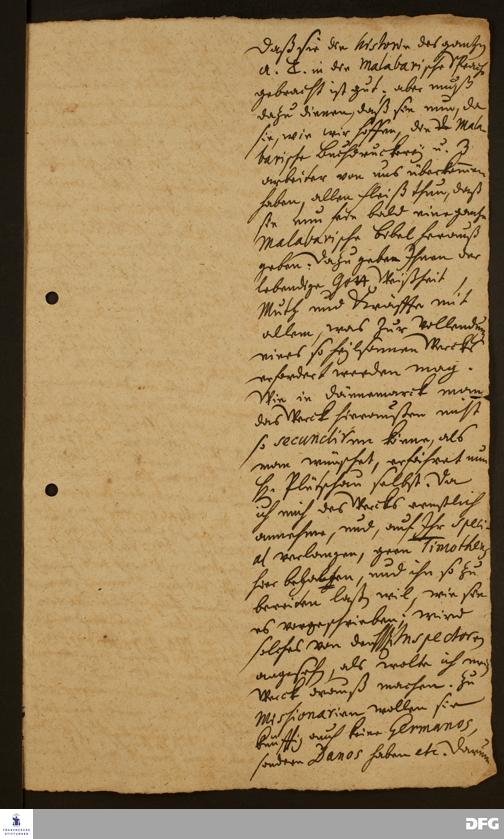 Daß sie den historie des gantzen
A. T. in der Malabarische Sprach
gebracht ist gut; aber muß
dazu dienen, daß sie nun, da
sie, wie wir hoffen, die Mala-
barische Buchdruckerei u. 3
arbeiter von uns überkommen
haben, allen fleiß thun, daß
sie nun fein bald eine gantze
Malabarische Bibel herauß
geben: dazu gebe Ihnen der
lebendige Gott Weißheit,
Muth und Kraffte mit
allem, was zur Vollendung
eines so heylsamen Wercks
erfordert werden mag.
Wie in Dännemarck man
das Werck hierauſsen nicht
so secundiren könne, als
man wünschet, erfähret nun
H. Plütschau selbst. Da
ich mich des Wercks ernstlich
annehme, und, auf Ihr speci-
al verlangen, gern Timotheum
hier behalten, und ihn so zu
bereiten laßen wil, wie sie
es vorgeschrieben; wird
solches von den Inspectoren
angesehen, als wolte ich mein
Werck drauß machen. Zu
Missionarien wollen sie
künfftig auch keine Germanos,
sondern Danos haben etc. Darum
FRANCKESCHE
STIFTUNGEN
DFG